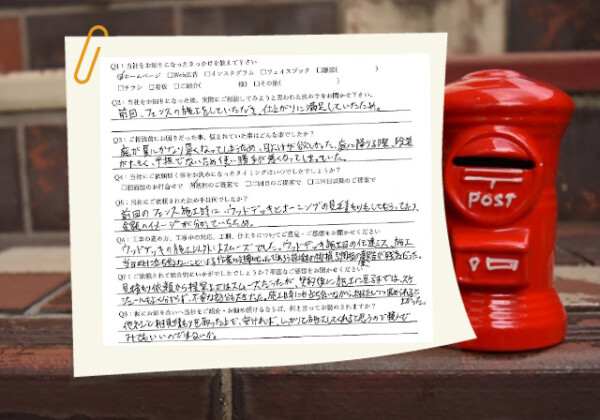 Q1：当社をお知りになったきっかけを教えて下さい
☑ホームページ □Web広告 □インスタグラム □フェイスブック □雑誌( )
□チラシ □看板 □ご紹介( 様) □その他( )
Q2：当社をお知りになった後、実際にご相談してみようと思われた決め手をお聞かせ下さい。
前回、フェンスの施工をしていただき、仕上がりに満足していたため。
Q3：ご相談前にお困りだった事、悩まれていた事はどんな事でしたか？
庭が夏にかなり暑くなってしまうため、日よけが欲しかった。庭に降りる際、段差
がたかく、平坦でないため使い勝手が悪くなってしまっていた。
Q4：当社にご依頼頂く事をお決めになったタイミングはいつでしたでしょうか？
□初回のお打合せで ☑初回のご提案で □二回目のご提案で □三回目以降のご提案で
Q5：当社に依頼された決め手は何でしたか？
前回のフェンス施工時に、ウッドデッキとオーニングの見積もりもしてもらっており、
金額のイメージが合っていたため。
Q6：工事の進め方、工事中の対応、工期、仕上りについてご意見・ご感想をお聞かせください
ウッドデッキの施工以外はスムーズでした。ウッドデッキ施工日の仕進み、施工
Q7：ご依頼されて総合的にいかがでしたでしょうか？率直なご感想をお聞かせください
見積り依頼から提案まではスムーズだったが、契約後に施工に至るまでは、スケ
Q8：仮にお知り合いへ当社をご紹介・お勧め頂けるならば、何と言ってお勧めされますか？
他社にて相見積もりを取った上で、安ければ、しっかりと施工してくれると思うので頼んで
みてもいいのではないか。
POST